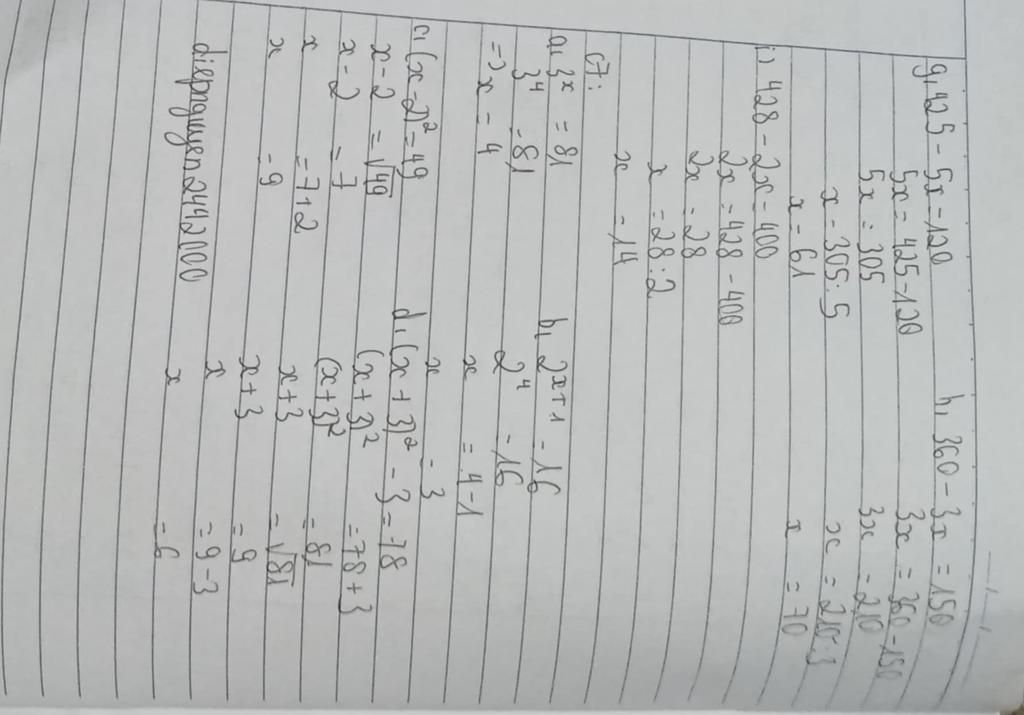 g, 425 - 5x = 120
5x = 425 - 120
5x = 305
x = 305 : 5
x = 61
h, 360 - 3x = 150
3x = 360 - 150
3x = 210
x = 210 : 3
x = 70
i, 428 - 2x = 400
2x = 428 - 400
2x = 28
x = 28 : 2
x = 14
C7:
a, 3ˣ = 81
3⁴ = 81
=> x = 4
b, 2ˣ⁺¹ = 16
2⁴ = 16
x = 4 - 1
x = 3
c, (x - 2)² = 49
x - 2 = √49
x - 2 = 7
x = 7 + 2
x = 9
d, (x + 3)² - 3 = 78
(x + 3)² = 78 + 3
(x + 3)² = 81
x + 3 = √81
x + 3 = 9
x = 9 - 3
x = 6
diepnguyen2442000